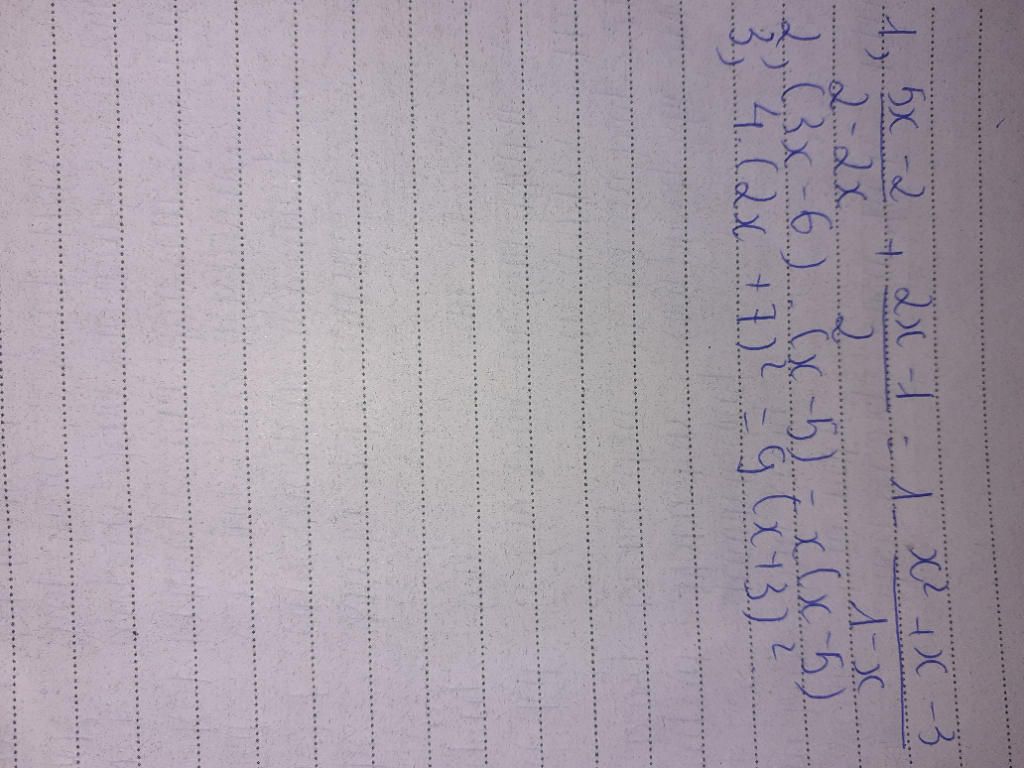 1, 5x - 2 + 2x - 1 = 1 x² + x - 3
2 - 2x 2 1 - x
2, (3x - 6) (x - 5) = x(x - 5)
3, 4.(2x + 7)² = 9(x+3)²